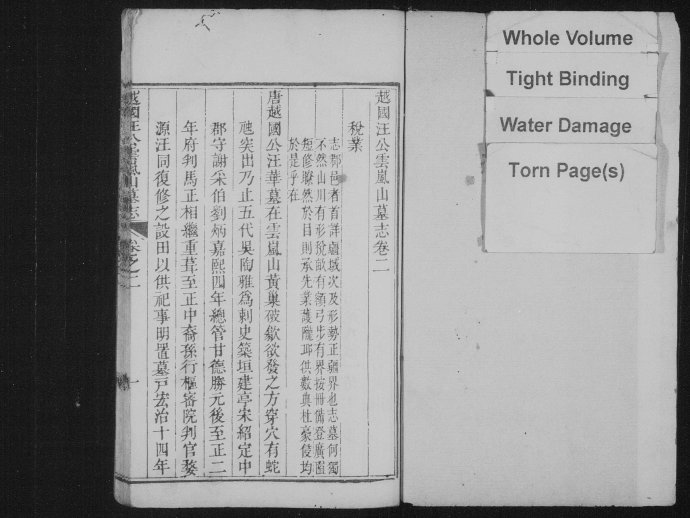 越國汪公雲嵐山墓志卷二
稅業
志郡邑者首詳疆域次及形勢正疆界也志墓何獨
不然山川有形稅畝有額弓步有界按冊備登廣隘
短修瞭然於目則承先業護隴邱供數典杜豪侵均
於是乎在
唐越國公汪華墓在雲嵐山黃巢破歙欲發之方穿穴有蛇
虺突出乃止五代吳陶雅為刺史築垣建亭宋紹定中
郡守謝采伯劉炳嘉熙四年總管甘德勝元後至正二
年府判馬正相繼重葺至正中裔孫行樞密院判官婺
源汪同復修之設田以供祀事明置墓戶宏治十四年
越國汪公雲嵐山墓志 卷之二 一
Whole Volume
Tight Binding
Water Damage
Torn Page(s)